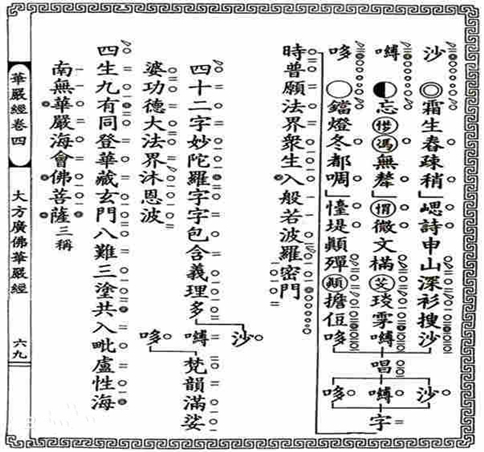 沙◎霜生春疎稍」崼詩申山深衫搜沙沙
嚩◐忘馮無」微文樠艾雺嚩唱嚩字
哆○鐺燈冬都啁」憧堤顛殫顛擔哆哆
時普願法界衆生入般若波羅密門
四十二字妙陀羅字字包含義理多沙嚩哆梵韻滿娑
婆功德大法界沐恩波
四生九有同登華藏玄門八難三塗共入毗盧性海
南無華嚴海會佛菩薩三稱
華嚴經卷四
大方廣佛華嚴經
六九